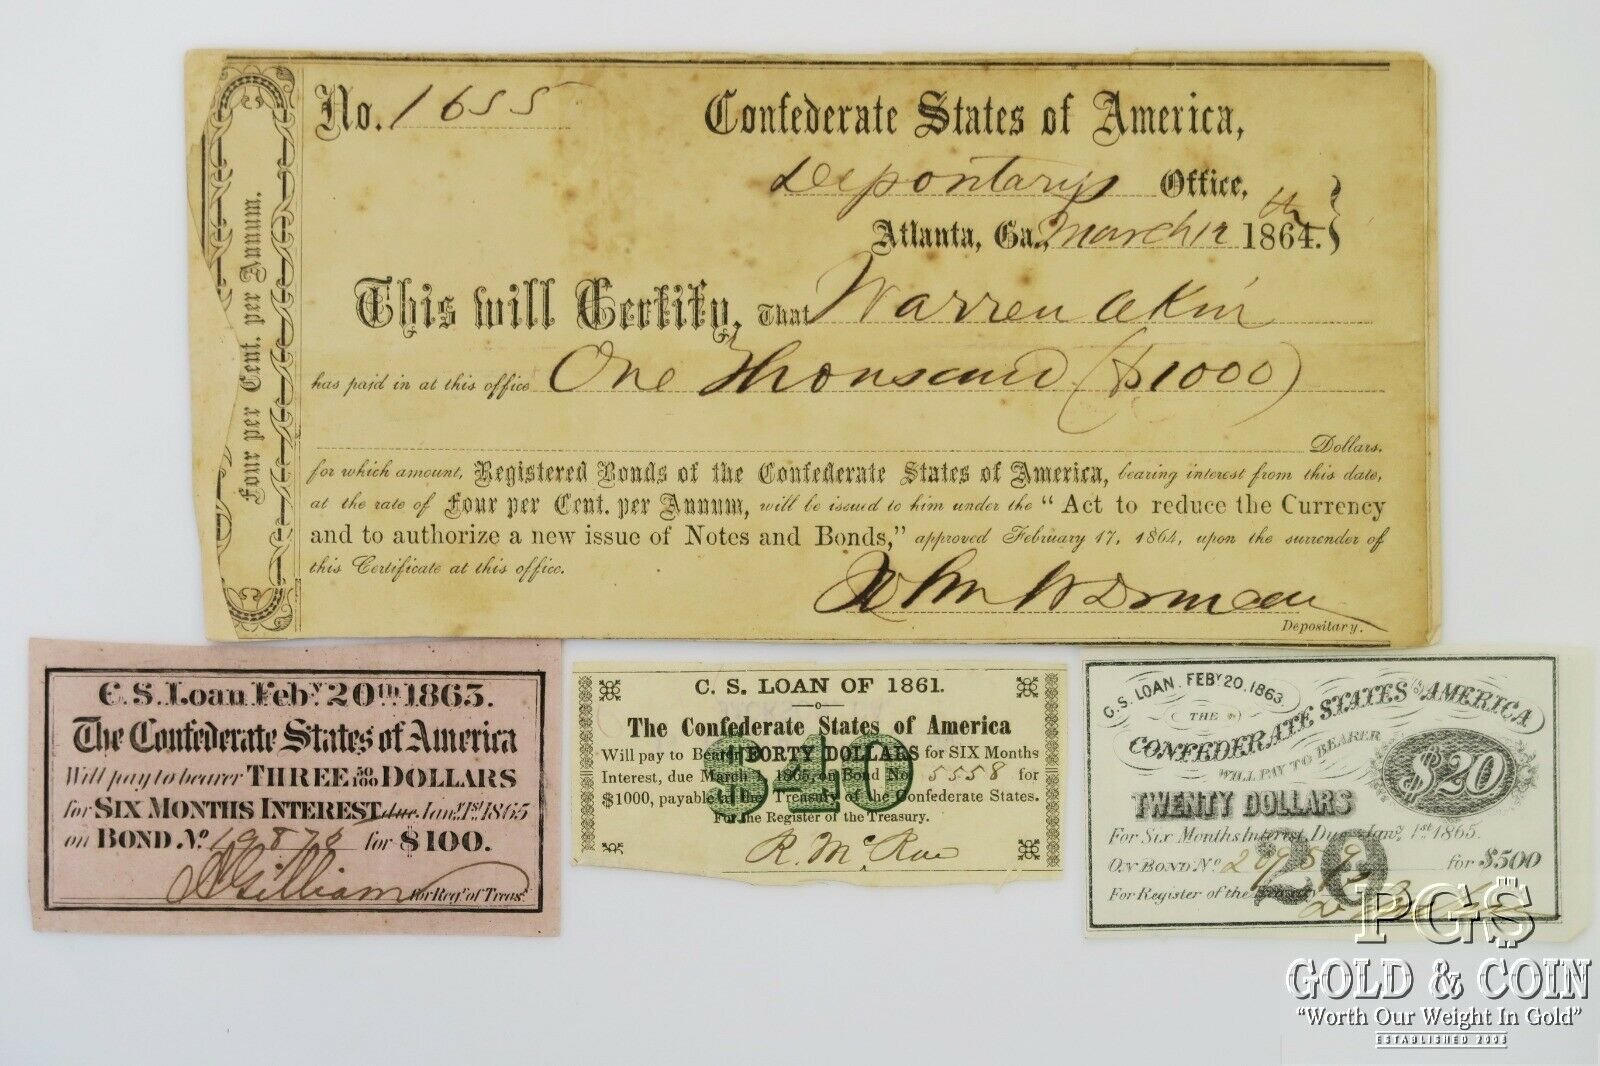 No. 1655
Confederate States of America,
Depositary's Office,
Atlanta, Ga., March 12th 1864.
Four per Cent. per Annum.
This will Certify, That Warren Akin
has paid in at this office One Thousand ($1000)
Dollars.
for which amount, Registered Bonds of the Confederate States of America, bearing interest from this date,
at the rate of Four per Cent. per Annum, will be issued to him under the "Act to reduce the Currency
and to authorize a new issue of Notes and Bonds," approved February 17, 1864, upon the surrender of
this Certificate at this office.
Depositary.
C.S. Loan Feby. 20th 1863.
The Confederate States of America
Will pay to bearer THREE 50/100 DOLLARS
for SIX MONTHS INTEREST due Jany. 1st 1865
on BOND No. 19873 for $100.
Gilliam for Regr. of Treasy.
C. S. LOAN OF 1861.
The Confederate States of America
Will pay to Bearer FORTY DOLLARS for SIX Months
Interest, due March 1, 1865, on Bond No. 5558 for
$1000, payable at the Treasury of the Confederate States.
For the Register of the Treasury.
$40
R. McRae
C.S. LOAN, FEBY 20, 1863
THE
CONFEDERATE STATES OF AMERICA
WILL PAY TO BEARER
$20
TWENTY DOLLARS
For Six Months Interest, Due Jany 1st 1865.
ON BOND No for $500
For Register of the
20
PG$
GOLD & COIN
"Worth Our Weight In Gold"
ESTABLISHED 2008